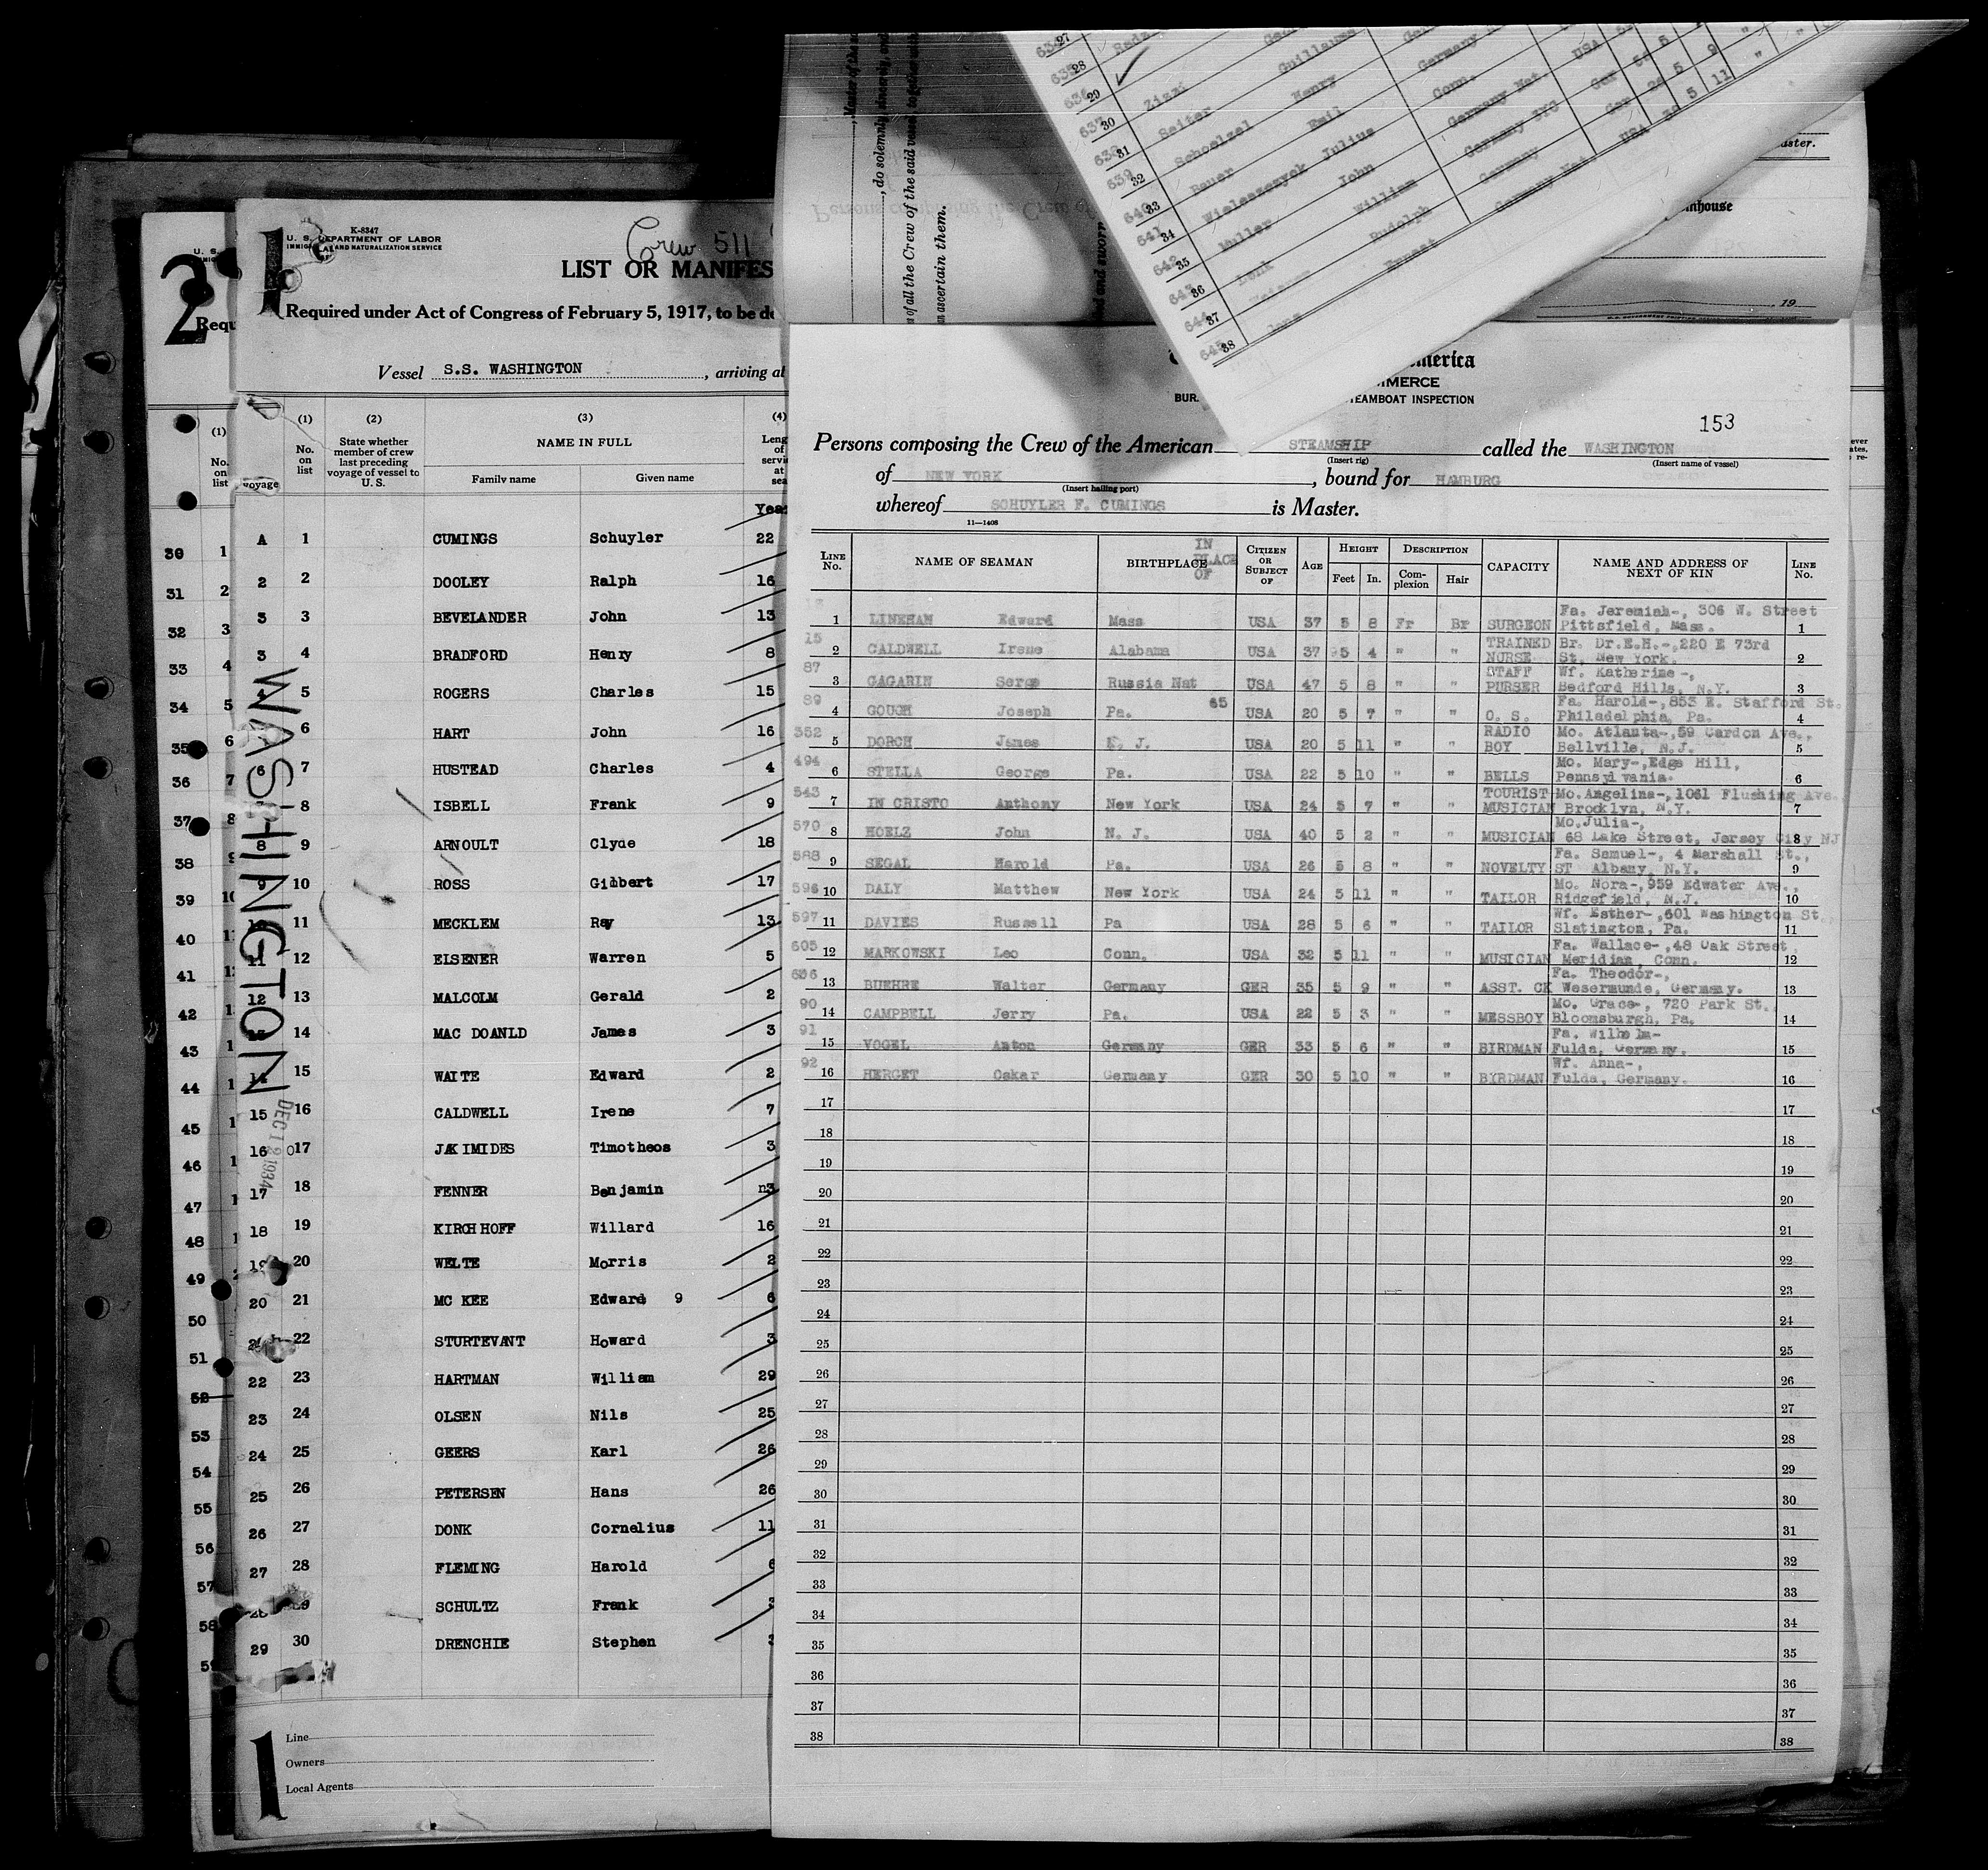 2
U. S.
Requ
K-8347
U. S. DEPARTMENT OF LABOR
IMMIGRATION AND NATURALIZATION SERVICE
Crew 511
LIST OR MANIFES
Required under Act of Congress of February 5, 1917, to be de
Vessel S.S. WASHINGTON, arriving at
(1) (2) (3) (4)
No. on list
State whether member of crew last preceding voyage of vessel to U. S.
NAME IN FULL
Family name Given name
voyage
WASHINGTON
DEC 12 1934
A 1 CUMINGS Schuyler 22
2 2 DOOLEY Ralph 16
3 3 BEVELANDER John 13
3 4 BRADFORD Henry 8
5 ROGERS Charles 15
6 HART John 16
6 7 HUSTEAD Charles 4
8 ISBELL Frank 9
8 9 ARNOULT Clyde 18
9 10 ROSS Gilbert 17
11 MECKLEM Ray 13
11 12 ELSENER Warren 5
12 13 MALCOLM Gerald 2
14 MAC DOANLD James 3
15 WAITE Edward 2
15 16 CALDWELL Irene 7
16 17 JAKIMIDES Timotheos 3
17 18 FENNER Benjamin 3
18 19 KIRCHHOFF Willard 16
19 20 WELTE Morris 2
20 21 MC KEE Edward 9 6
22 STURTEVANT Howard 3
22 23 HARTMAN William 29
23 24 OLSEN Nils 25
24 25 GEERS Karl 26
25 26 PETERSEN Hans 26
26 27 DONK Cornelius 11
27 28 FLEMING Harold 6
28 29 SCHULTZ Frank
29 30 DRENCHIE Stephen
Line
Owners
Local Agents
1
30 1
31 2
32 3
33 4
34 5
35 6
36 7
37 8
38
39
40
41
42
43
44
45
46
47
48
49
50
51
52
53
54
55
56
57
58
, Master of the
, do solemnly, sincerely, and
of all the Crew of the said vessel together with
n ascertain them.
and sworn
aster.
nhouse
, 19
28
29 Zizzi Guillaume
30 Seiter Henry Germany
31 Schoelzel Emil Conn.
32 Bauer Julius Germany Nat. USA
33 Wieleszczyck John Germany NYC Ger
34 Muller William Germany Ger
35 Lenk Rudolph Germany Nat USA 5 11
36
37
38
merica
MMERCE
BUR. TEAMBOAT INSPECTION
153
Persons composing the Crew of the American STEAMSHIP called the WASHINGTON
(Insert rig) (Insert name of vessel)
of NEW YORK, bound for HAMBURG
(Insert hailing port)
whereof SCHUYLER F. CUMINGS is Master.
11—1408
LINE No. NAME OF SEAMAN BIRTHPLACE IN PLACE OF CITIZEN OR SUBJECT OF AGE HEIGHT Feet In. DESCRIPTION Complexion Hair CAPACITY NAME AND ADDRESS OF NEXT OF KIN LINE No.
1 LINEHAN Edward Mass USA 37 5 8 Fr Br SURGEON Fa. Jeremiah-, 306 W. Street Pittsfield, Mass. 1
15 2 CALDWELL Irene Alabama USA 37 5 4 " " TRAINED NURSE Br. Dr.E.H.-,220 E 73rd St, New York. 2
87 3 GAGARIN Serge Russia Nat USA 47 5 8 " " STAFF PURSER Wf. Katherine-, Bedford Hills, N.Y. 3
89 4 GOUGH Joseph Pa. 65 USA 20 5 7 " " O. S. Fa. Harold-,853 E. Stafford St. Philadelphia, Pa. 4
352 5 DORCH James N. J. USA 20 5 11 " " RADIO BOY Mo. Atlanta-,59 Cardon Ave., Bellville, N.J. 5
494 6 STELLA George Pa. USA 22 5 10 " " BELLS Mo. Mary-,Edge Hill, Pennsylvania. 6
543 7 IN CRISTO Anthony New York USA 24 5 7 " " TOURIST MUSICIAN Mo.Angelina-,1061 Flushing Ave. Brooklyn, N.Y. 7
570 8 HOELZ John N. J. USA 40 5 2 " " MUSICIAN Mo.Julia-, 68 Lake Street, Jersey City NJ 8
588 9 SEGAL Harold Pa. USA 26 5 8 " " NOVELTY ST Fa. Samuel-, 4 Marshall St., Albany, N.Y. 9
596 10 DALY Matthew New York USA 24 5 11 " " TAILOR Mo. Nora-,959 Edwater Ave., Ridgefield, N.J. 10
597 11 DAVIES Russell Pa USA 28 5 6 " " TAILOR Wf. Esther-,601 Washington St. Slatington, Pa. 11
605 12 MARKOWSKI Leo Conn. USA 32 5 11 " " MUSICIAN Fa. Wallace-,48 Oak Street, Meridian, Conn. 12
636 13 BUEHRE Walter Germany GER 35 5 9 " " ASST. CK Fa. Theodor-, Wesermunde, Germany. 13
90 14 CAMPBELL Jerry Pa. USA 22 5 3 " " MESSBOY Mo. Grace-, 720 Park St., Bloomsburgh, Pa. 14
91 15 VOGEL Anton Germany GER 33 5 6 " " BIRDMAN Fa. Wilhelm- Fulda, Germany. 15
92 16 HERGET Oskar Germany GER 30 5 10 " " BYRDMAN Wf. Anna-, Fulda, Germany. 16
17 17
18 18
19 19
20 20
21 21
22 22
23 23
24 24
25 25
26 26
27 27
28 28
29 29
30 30
31 31
32 32
33 33
34 34
35 35
36 36
37 37
38 38